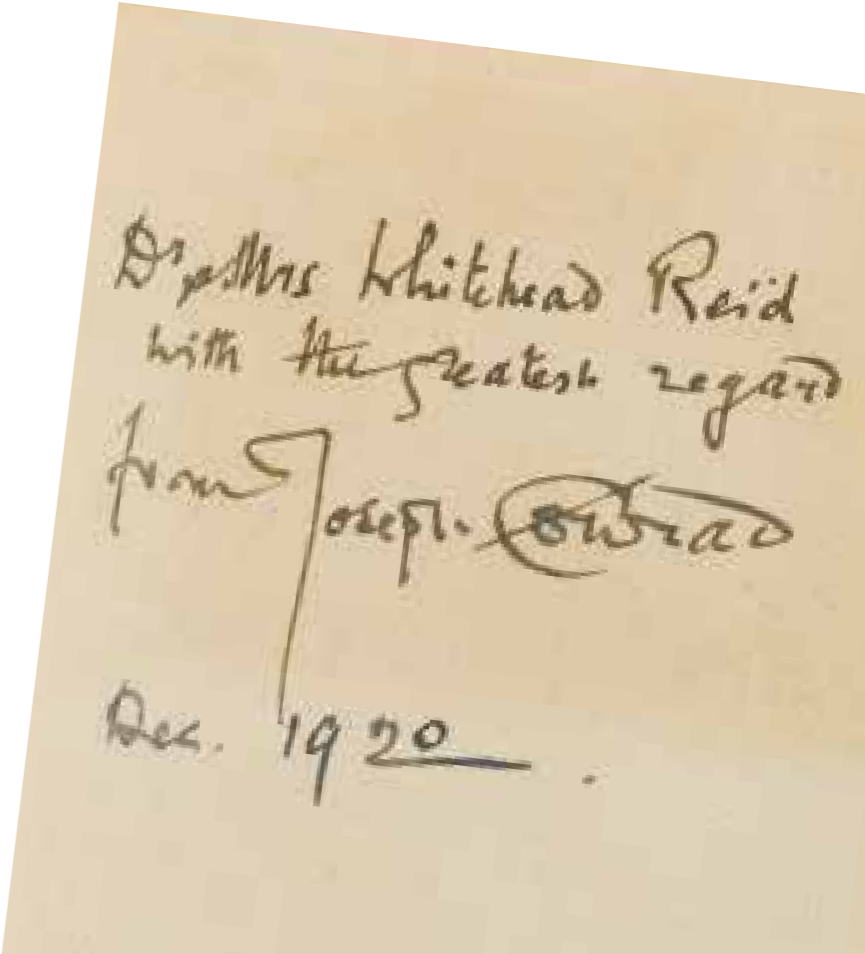 Dr & Mrs Whitehead Reid
with the greatest regard
from Joseph Conrad
Dec. 1920.